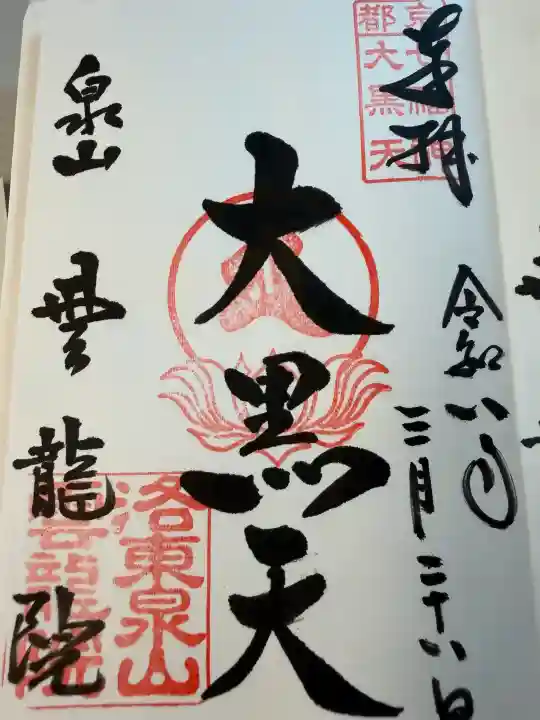 奉拝
令和八年
三月二十八日
大黒天
泉山 雲龍院
京七福神
都大黒天
洛東泉山
雲龍院